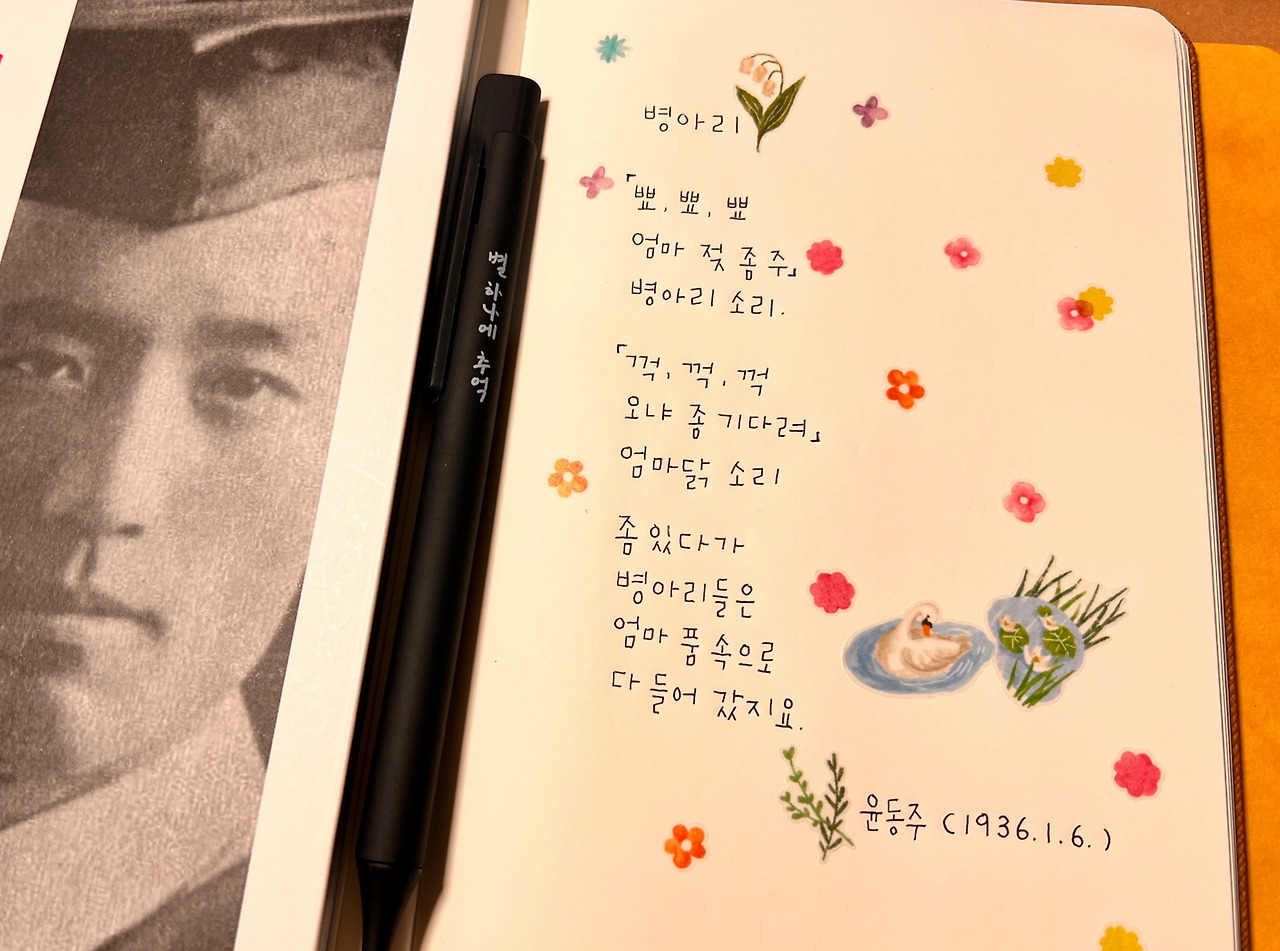 별 하나에 추억
병아리
「뾰, 뾰, 뾰
엄마 젖 좀 주」
병아리 소리.
「꺽, 꺽, 꺽
오냐 좀 기다려」
엄마닭 소리
좀 있다가
병아리들은
엄마 품 속으로
다 들어 갔지요.
윤동주 (1936.1.6.)